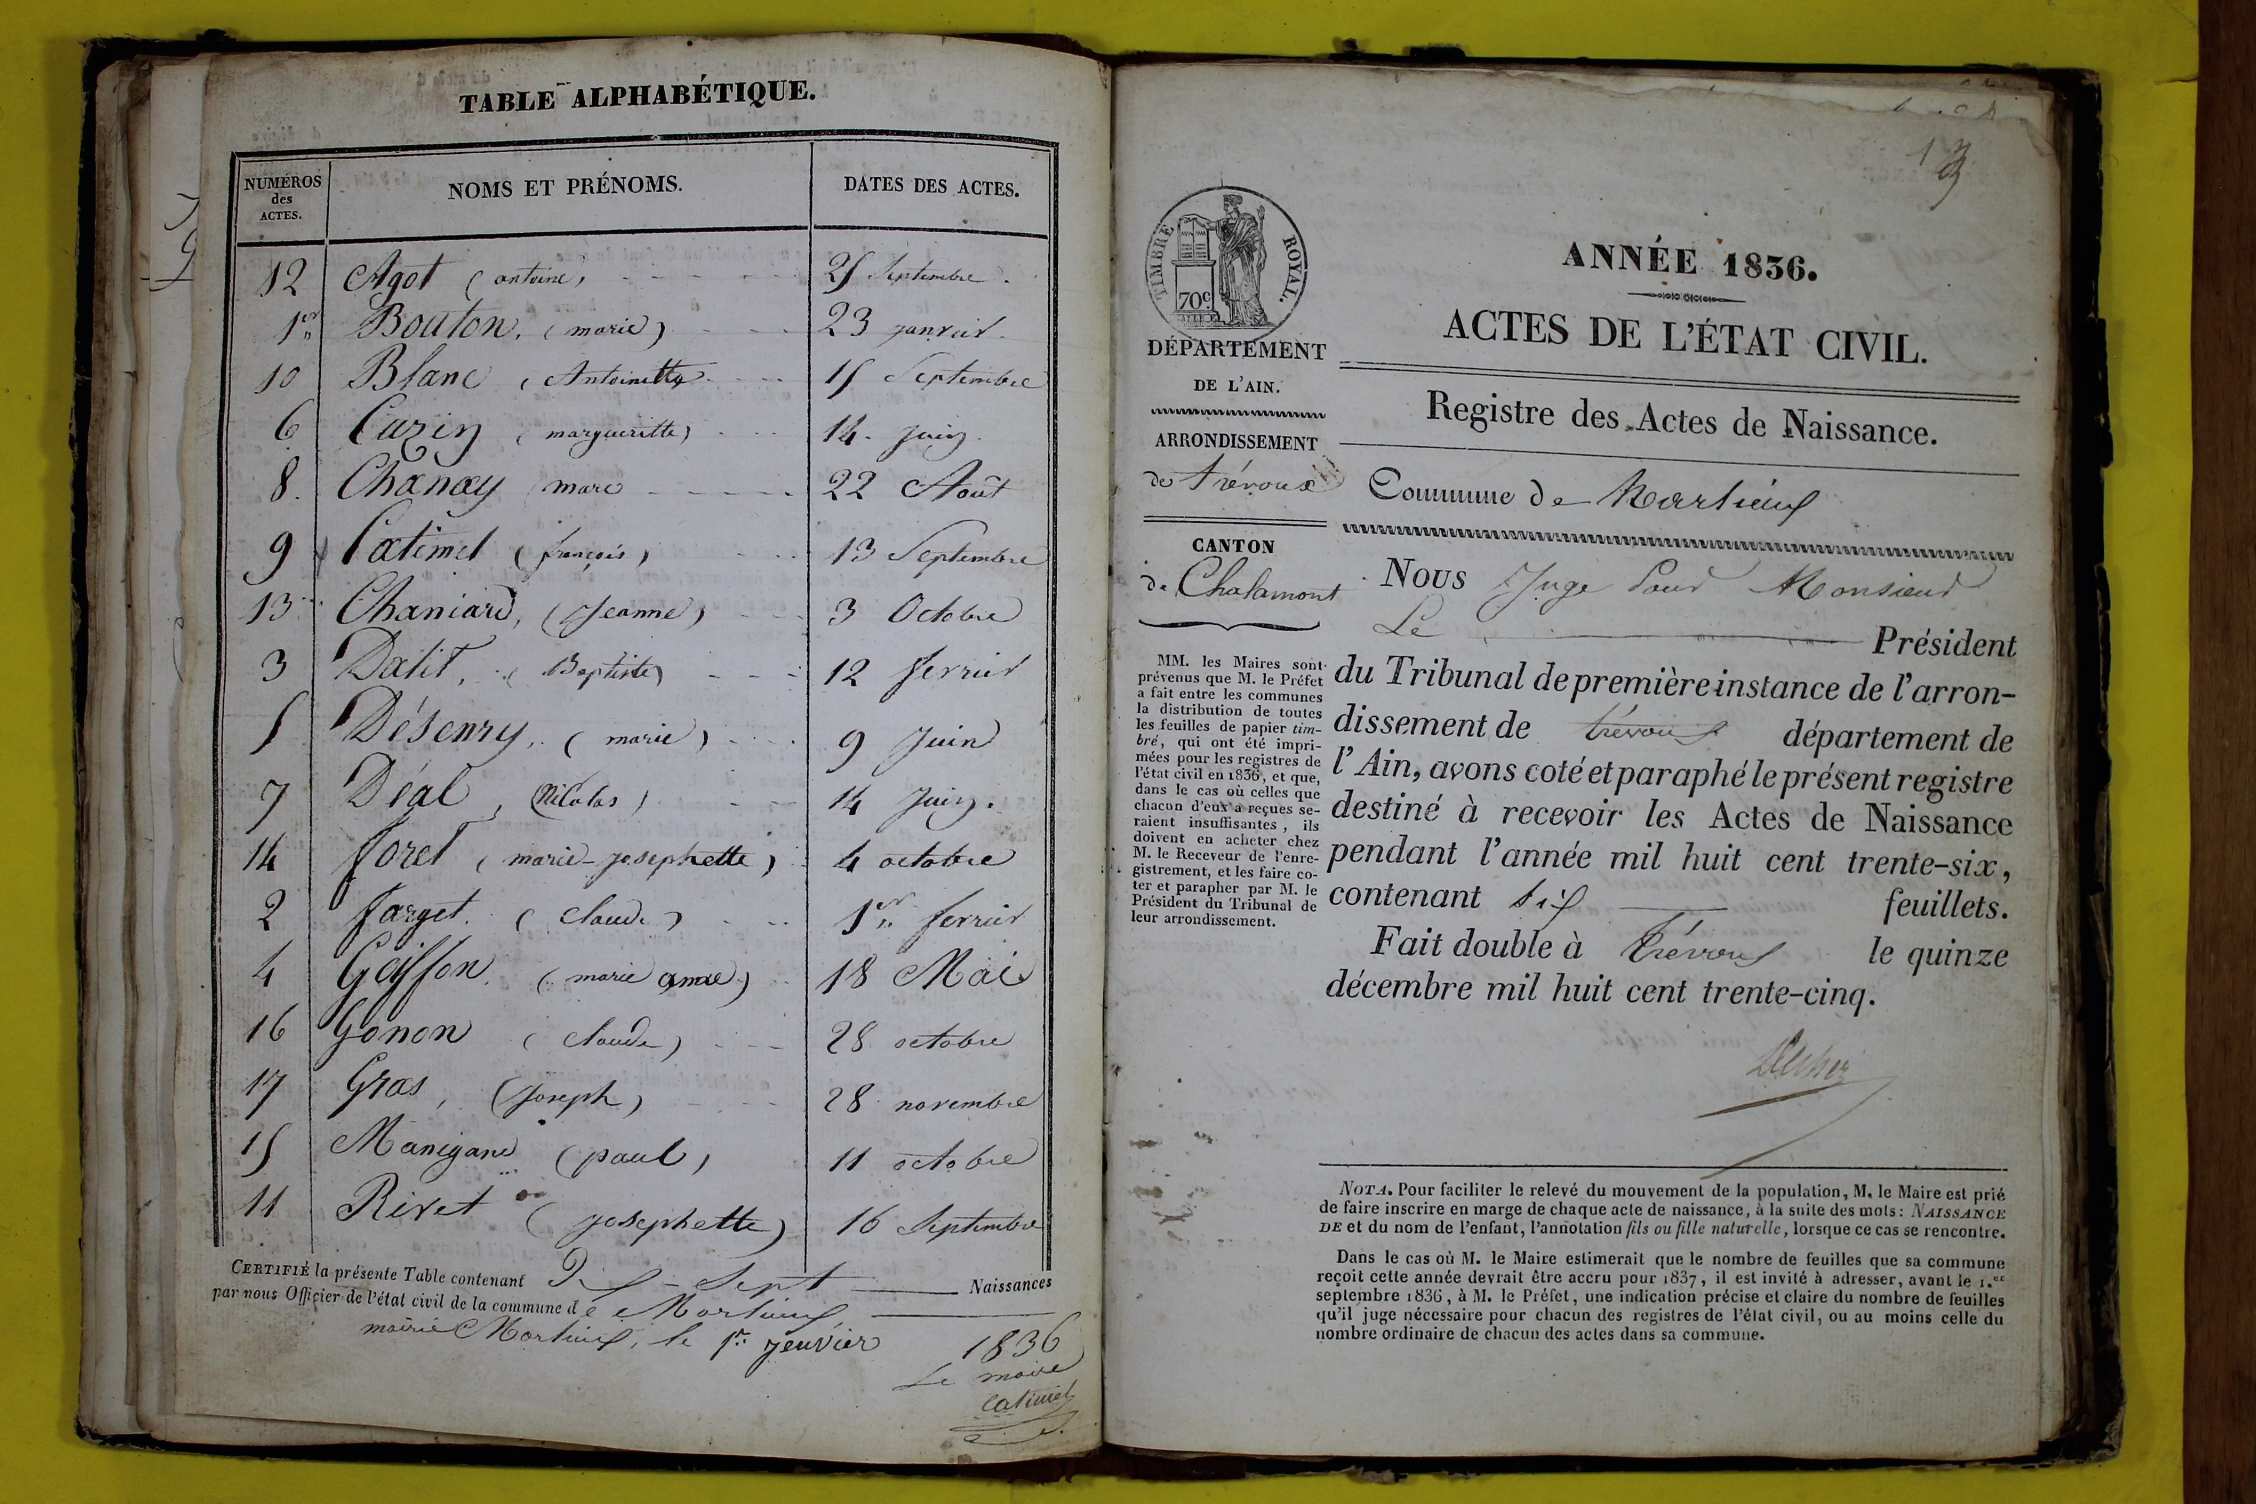 TABLE ALPHABÉTIQUE.
NUMÉROS des ACTES. NOMS ET PRÉNOMS. DATES DES ACTES.
12 Agot (antoine) 25 Septembre.
1er Bouton, (marie) 23 janvier
10 Blanc (Antoinette) 15 Septembre
6 Curin (margueritte) 14 juin
8. Chanay marc 22 Août
9 Catimel (françois) 13 Septembre
13 Chaniard, (Jeanne) 3 Octobre
3 Dalit, (Baptiste) 12 ferrier
5 Désenry, (marie) 9 Juin
7 Déal, (Nicolas) 14 Juin.
14 foret (marie-josephette) 4 octobre
2 farget. (Claude) 1er ferrier
4 Geiffon. (marie anne) 18 Mai
16 Gonon (Claude) 28 octobre
17 Gras, (joseph) 28 novembre
15 Manigand (paul) 11 octobre
11 Rivet (josephette) 16 Septembre
CERTIFIÉ la présente Table contenant Dix-Sept Naissances
par nous Officier de l'état civil de la commune de Marlieux
mairie Marlieux, le 1er jeuvier 1836
Le maire
Catimel
13
TIMBRE ROYAL.
70c
DÉPARTEMENT
DE L'AIN.
ARRONDISSEMENT
de trévoux
CANTON
de Chalamont
MM. les Maires sont
prévenus que M. le Préfet
a fait entre les communes
la distribution de toutes
les feuilles de papier tim-
bré, qui ont été impri-
mées pour les registres de
l'état civil en 1836, et que,
dans le cas où celles que
chacun d'eux a reçues se-
raient insuffisantes, ils
doivent en acheter chez
M. le Receveur de l'enre-
gistrement, et les faire co-
ter et parapher par M. le
Président du Tribunal de
leur arrondissement.
ANNÉE 1836.
ACTES DE L'ÉTAT CIVIL.
Registre des Actes de Naissance.
Commune de Marlieux
NOUS Juge Pour Monsieur
Le Président
du Tribunal de première instance de l'arron-
dissement de trévoux département de
l'Ain, avons coté et paraphé le présent registre
destiné à recevoir les Actes de Naissance
pendant l'année mil huit cent trente-six,
contenant six feuillets.
Fait double à trévoux le quinze
décembre mil huit cent trente-cinq.
NOTA. Pour faciliter le relevé du mouvement de la population, M. le Maire est prié
de faire inscrire en marge de chaque acte de naissance, à la suite des mots: NAISSANCE
DE et du nom de l'enfant, l'annotation fils ou fille naturelle, lorsque ce cas se rencontre.
Dans le cas où M. le Maire estimerait que le nombre de feuilles que sa commune
reçoit cette année devrait être accru pour 1837, il est invité à adresser, avant le 1.er
septembre 1836, à M. le Préfet, une indication précise et claire du nombre de feuilles
qu'il juge nécessaire pour chacun des registres de l'état civil, ou au moins celle du
nombre ordinaire de chacun des actes dans sa commune.